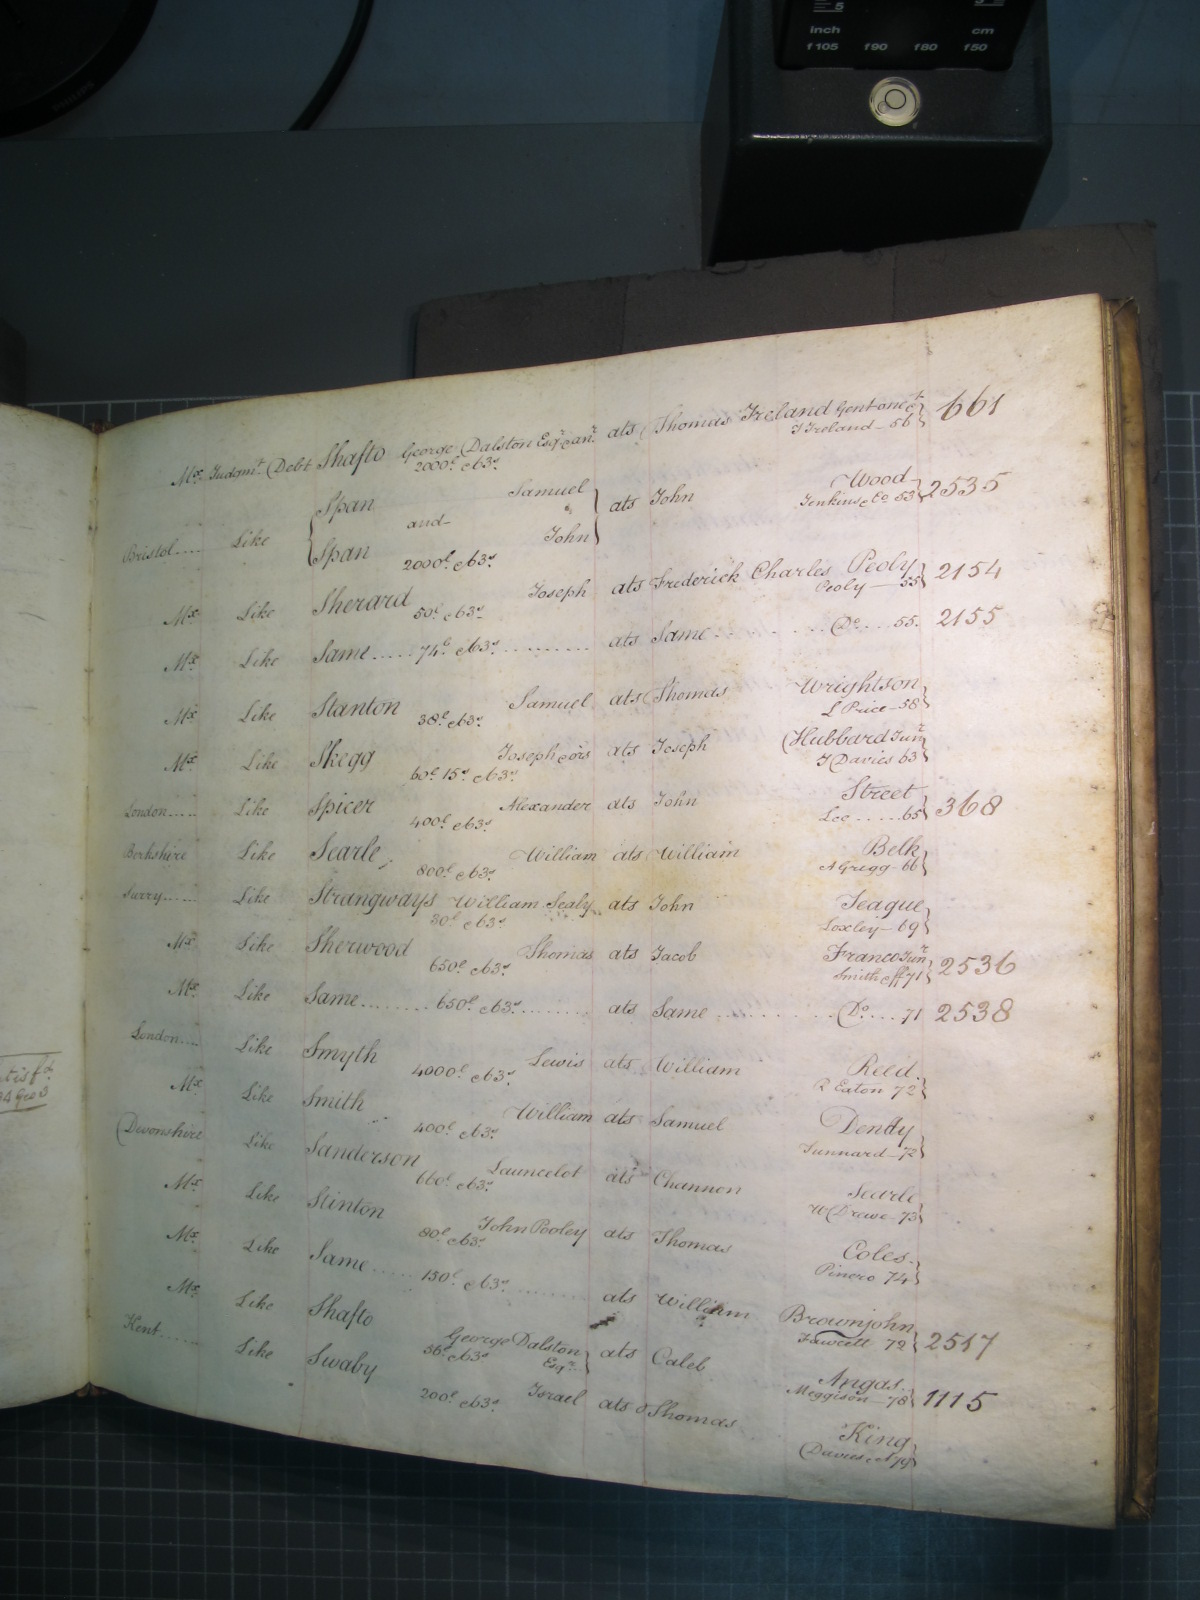 inch cm
f105 f90 f80 f50
PHILIPS
Mx Judgmt Debt Shafto George Dalston Esqr & anr ats Thomas Ireland Gent one &c 661
2000£ & 63s J Ireland 56
Bristol Like Span and Span Samuel John ats John Wood 2535
2000£ & 63s Jenkins & Co 53
Mx Like Sherard Joseph ats Frederick Charles Peoly 2154
50£ & 63s Peoly 55
Mx Like Same 74£ & 63s ats Same Do 55 2155
Mx Like Stanton Samuel ats Thomas Wrightson
38£ & 63s L Price 58
Mx Like Skegg Joseph & ors ats Joseph Hubbard Junr
60£ 15s & 63s J Davies 63
London Like Spicer Alexander ats John Street 368
400£ & 63s Lee 65
Berkshire Like Searle William ats William Belk
800£ & 63s A Gregg 66
Surry Like Strangways William Sealy ats John Teague
30£ & 63s Loxley 69
Mx Like Sherwood Thomas ats Jacob Franco Junr 2536
650£ & 63s Smith 71
Mx Like Same 650£ & 63s ats Same Do 71 2538
London Like Smyth Lewis ats William Reed
4000£ & 63s R Eaton 72
Mx Like Smith William ats Samuel Dendy
400£ & 63s Tunnard 72
Devonshire Like Sanderson Launcelot ats Channon Searle
660£ & 63s W Drewe 73
Mx Like Stinton John Pooley ats Thomas Coles
80£ & 63s Pinero 74
Mx Like Same 150£ & 63s ats William Brownjohn 2517
Fawcett 72
Mx Like Shafto George Dalston Esqr ats Caleb Angas 1115
56£ & 63s Meggison 78
Kent Like Swaby Israel ats Thomas King
200£ & 63s Davies 79
tisfd
Geo 3